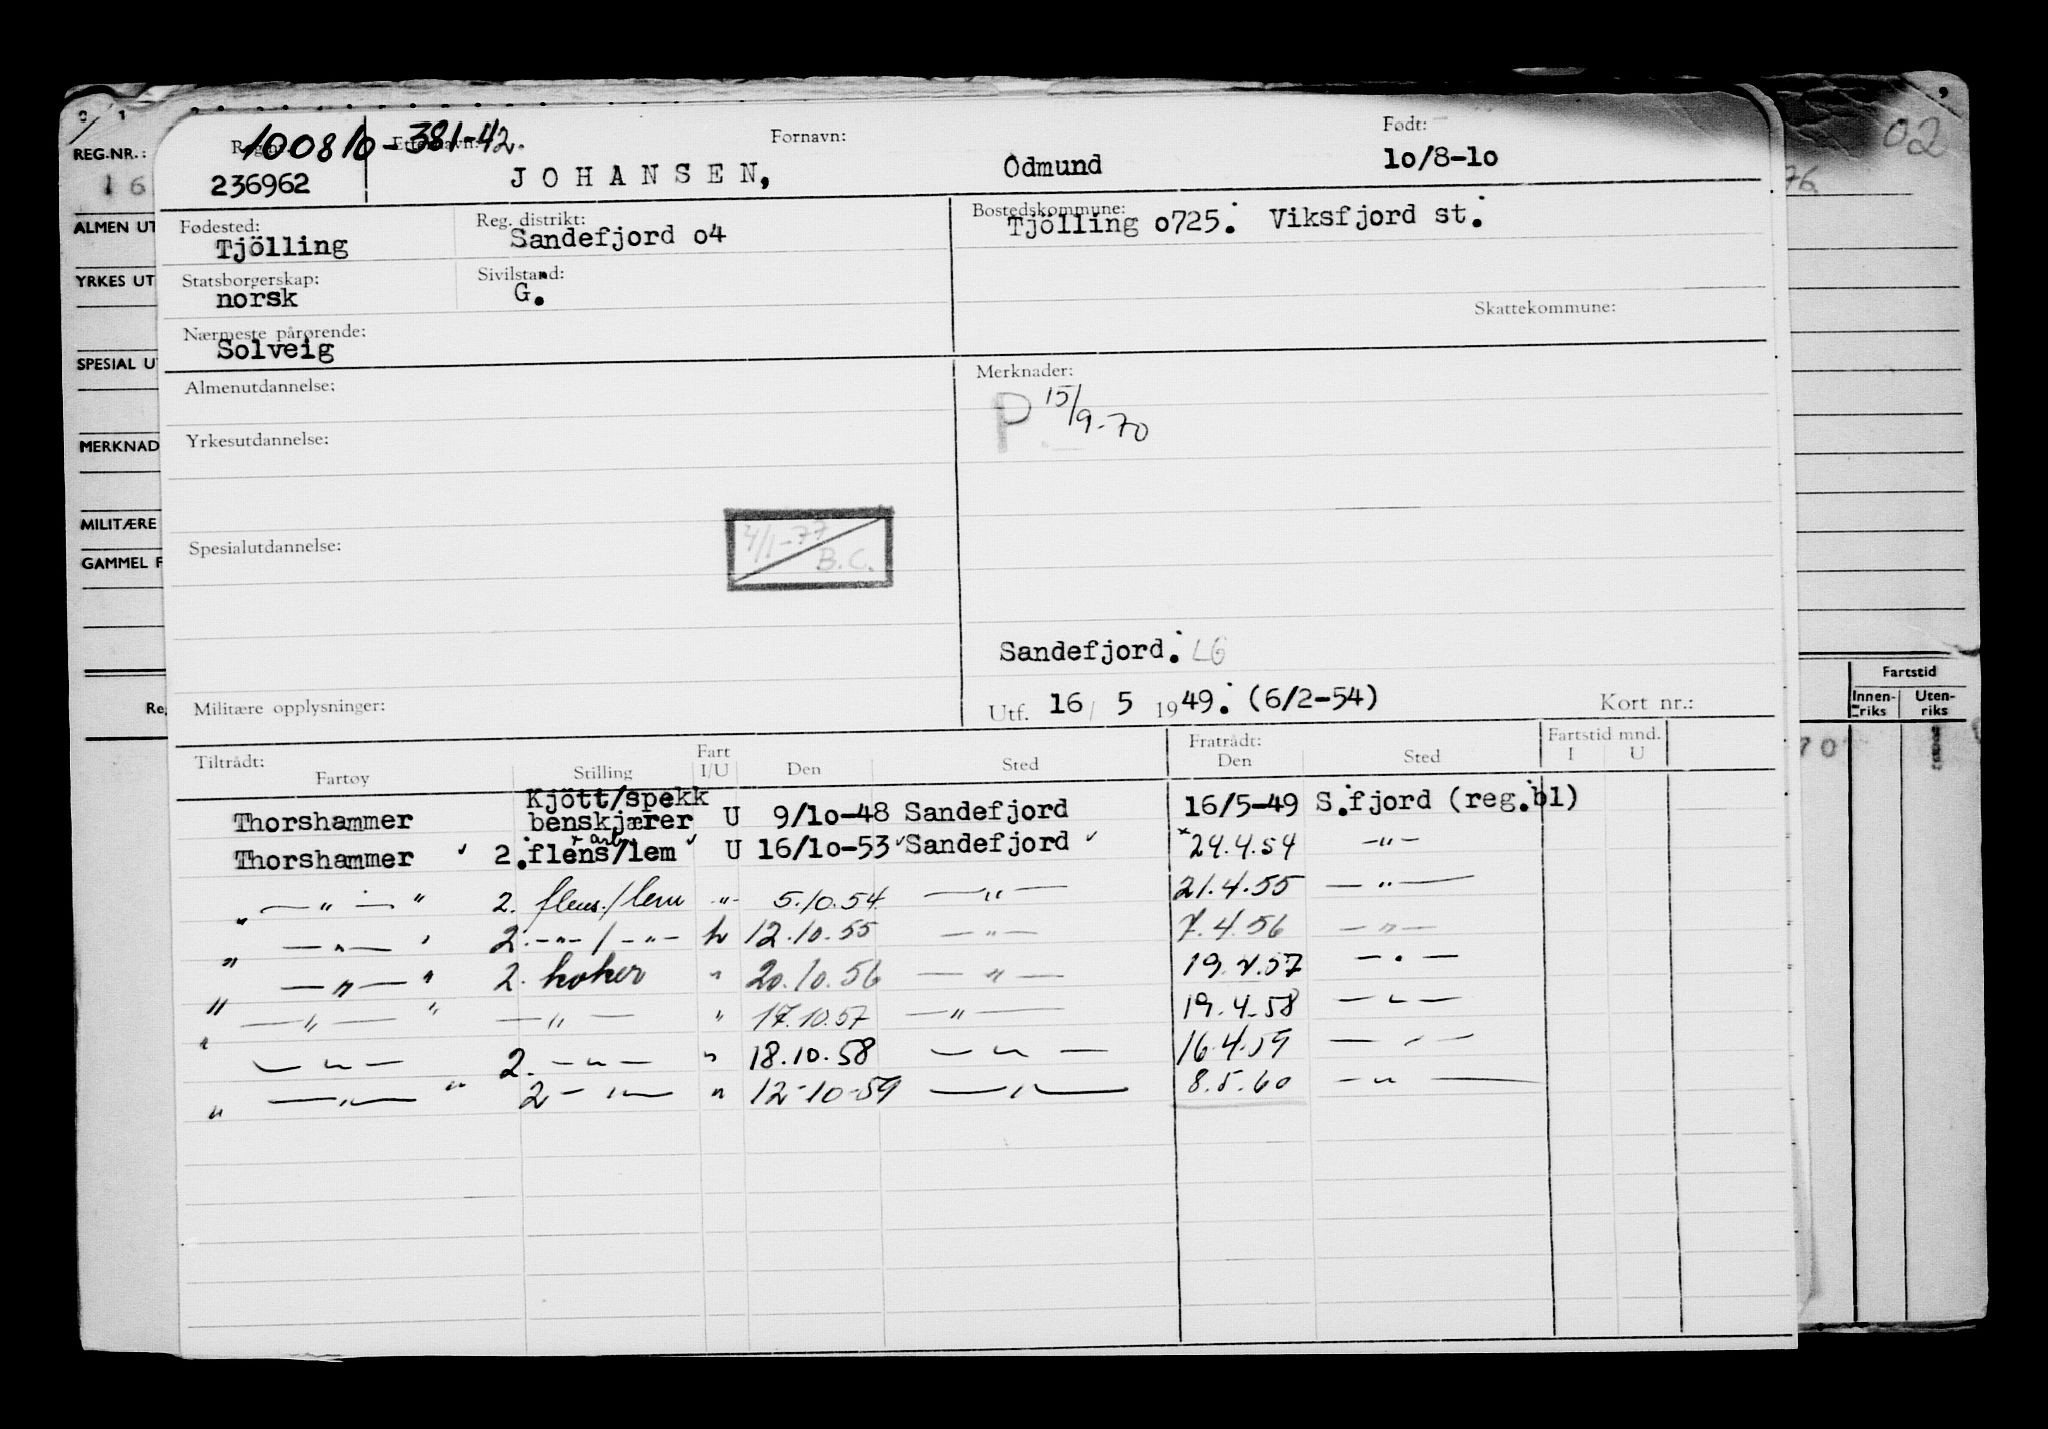 REG.NR.:
ALMEN UT
YRKES UT
SPESIAL U
MERKNAD
MILITÆRE
GAMMEL F
02
Fartstid
Innen-riks Uten-riks
100810-381-42.
236962
Fornavn:
Født:
JOHANSEN, Odmund 1o/8-1o
Fødested: Tjölling
Reg. distrikt: Sandefjord o4
Bostedskommune: Tjölling o725. Viksfjord st.
Statsborgerskap: norsk
Sivilstand: G.
Skattekommune:
Nærmeste pårørende: Solveig
Almenutdannelse:
Merknader:
P 15/9-70
Yrkesutdannelse:
4/1-77 B.C.
Spesialutdannelse:
Sandefjord. LG
Militære opplysninger:
Utf. 16/ 5 1949. (6/2-54)
Kort nr.:
Tiltrådt: Fratrådt: Fartstid mnd.
Fartøy Stilling Fart I/U Den Sted Den Sted I U
Thorshammer Kjött/spekk benskjærer U 9/1o-48 Sandefjord 16/5-49 S.fjord (reg.bl)
Thorshammer ✓ 2.flens/lem ✓ U 16/1o-53 ✓ Sandefjord ✓ 24.4.54 —"—
" —"— " 2. flens./lem -"- 5.10.54 —"— 21.4.55 —"—
" —"— " 2. -"-/-"- " 12.10.55 —"— 7.4.56 —"—
" —"— " 2. koker " 20.10.56 —"— 19.4.57 —"—
" —"— " —"— " 17.10.57 —"— 19.4.58 —"—
" —"— 2. —"— " 18.10.58 —"— 16.4.59 —"—
" —"— " 2 —"— " 12-10-59 —"— 8.5.60 —"—